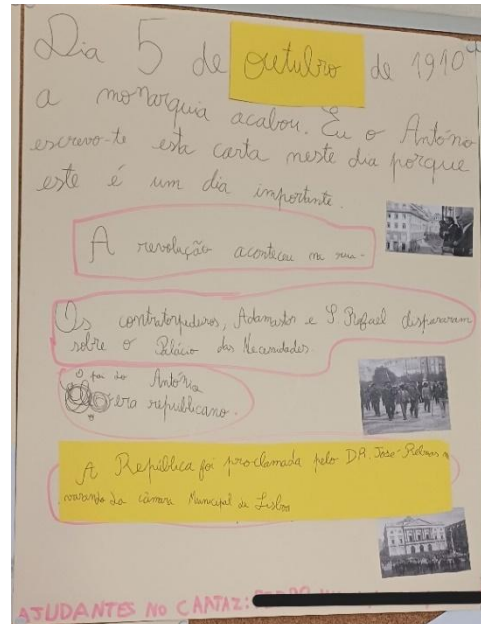 Dia 5 de outubro de 1910
a monarquia acabou. Eu o António
escrevo-te esta carta neste dia porque
este é um dia importante.
A revolução aconteceu na rua.
Os contratorpedeiros, Adamastor e S. Rafael dispararam
sobre o Palácio das Necessidades.
O pai do António
era republicano.
A República foi proclamada pelo DR. José Relvas n
varanda da câmara Municipal de Lisboa
AJUDANTES NO CARTAZ: